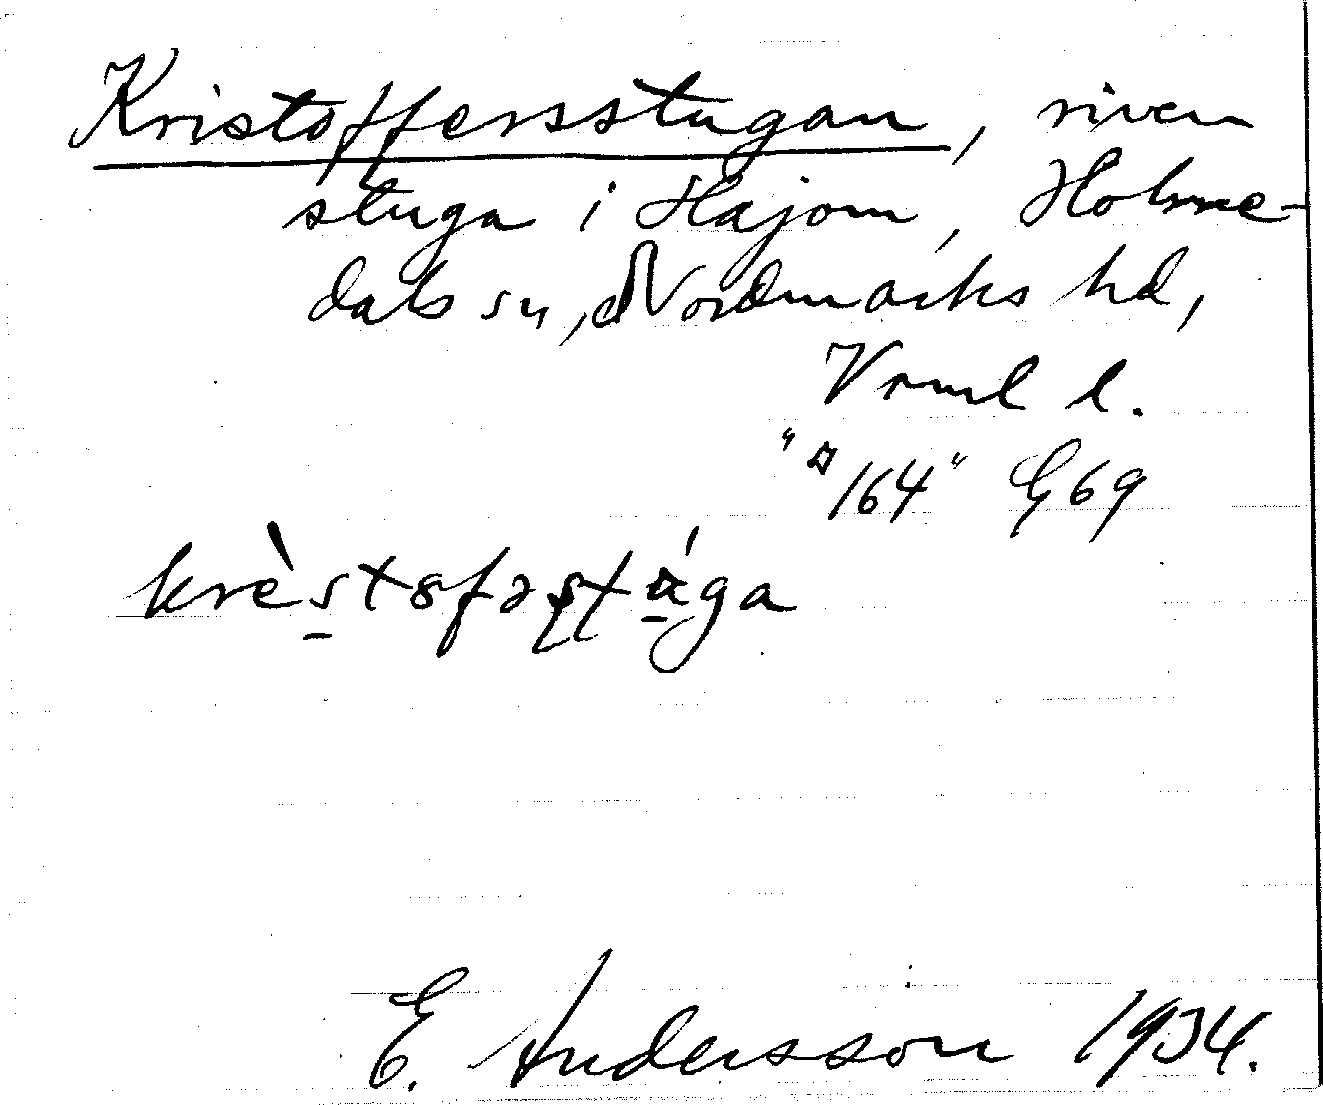 Kristoffersstugan, riven
stuga i Hajom, Holme-
dals sn, Nordmarks hd,
Vrml l.
"¤164" E69
E. Andersson 1934.